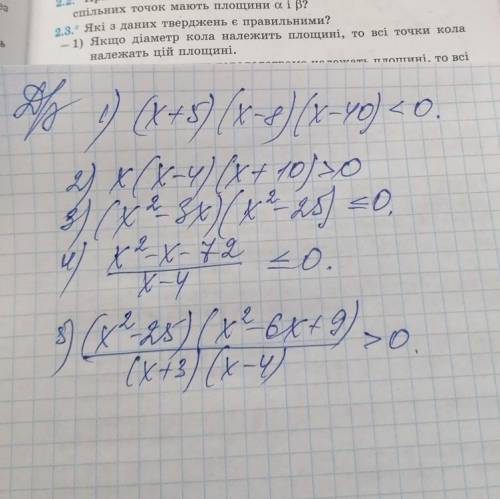 спільних точок мають площини α і β?
2.3.° Які з даних тверджень є правильними?
– 1) Якщо діаметр кола належить площині, то всі точки кола
належать цій площині.
належать площині, то всі
Д/з 1) (x+5)(x-8)(x-40)<0.
2) x(x-4)(x+10)>0
3) (x²-3x)(x²-25)≤0.
4) x²-x-72 / x-4 ≤0.
5) (x²-25)(x²-6x+9) / (x+3)(x-4) >0.